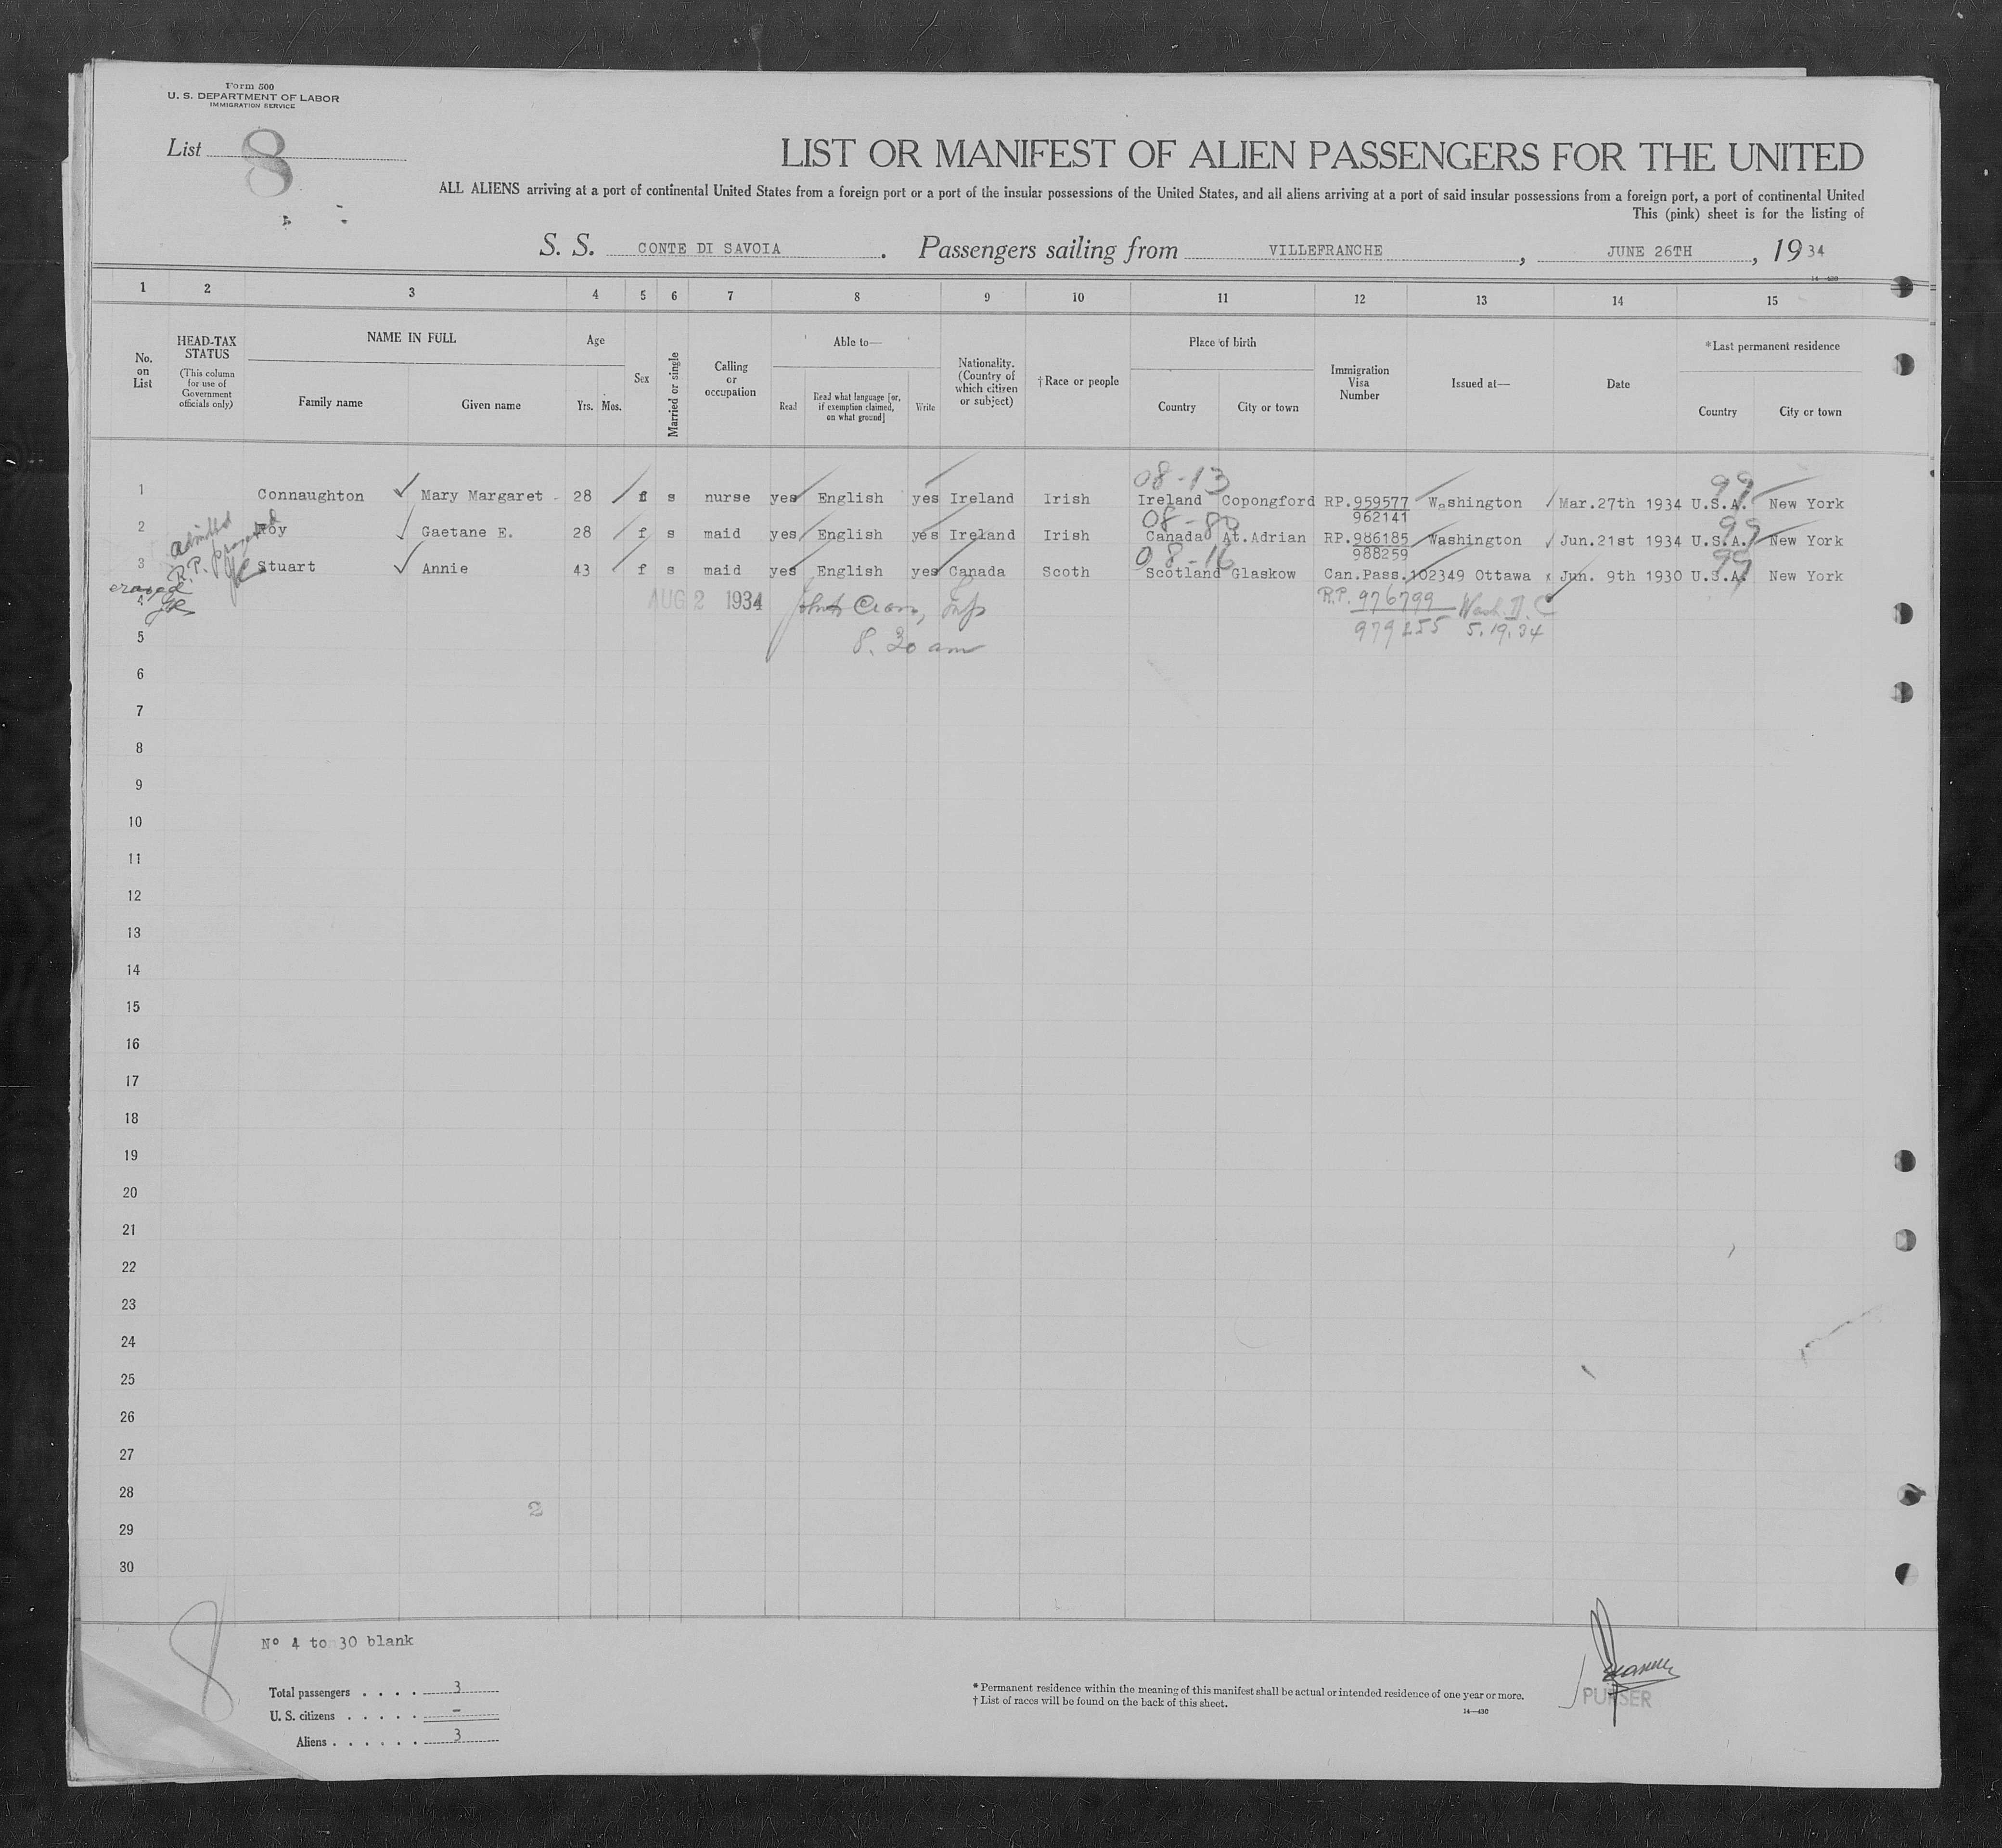 Form 500
U. S. DEPARTMENT OF LABOR
IMMIGRATION SERVICE
List 8
LIST OR MANIFEST OF ALIEN PASSENGERS FOR THE UNITED
ALL ALIENS arriving at a port of continental United States from a foreign port or a port of the insular possessions of the United States, and all aliens arriving at a port of said insular possessions from a foreign port, a port of continental United
This (pink) sheet is for the listing of
S. S. CONTE DI SAVOIA. Passengers sailing from VILLEFRANCHE, JUNE 26TH, 1934
14—430
1 2 3 4 5 6 7 8 9 10 11 12 13 14 15
No. on List
HEAD-TAX STATUS
(This column for use of Government officials only)
NAME IN FULL
Family name Given name
Age
Yrs. Mos.
Sex
Married or single
Calling or occupation
Able to—
Read
Read what language [or, if exemption claimed, on what ground]
Write
Nationality. (Country of which citizen or subject)
†Race or people
Place of birth
Country City or town
Immigration Visa Number
Issued at—
Date
*Last permanent residence
Country City or town
08-13 99
1 Connaughton Mary Margaret 28 f s nurse yes English yes Ireland Irish Ireland Copongford RP.959577 Washington Mar.27th 1934 U.S.A. New York
962141
08-80 99
2 Roy Gaetane E. 28 f s maid yes English yes Ireland Irish Canada At.Adrian RP.986185 Washington Jun.21st 1934 U.S.A. New York
988259
08-16 99
3 Stuart Annie 43 f s maid yes English yes Canada Scoth Scotland Glaskow Can.Pass.102349 Ottawa Jun. 9th 1930 U.S.A. New York
admitted
R.P. presented
erased
4 AUG 2 1934 R.P. 976799 Wash. D. C
979255 5.19.34
5 8.30 am
6
7
8
9
10
11
12
13
14
15
16
17
18
19
20
21
22
23
24
25
26
27
28
2
29
30
8
Nº 4 to 30 blank
Total passengers . . . . 3
U. S. citizens . . . . . -
Aliens . . . . . . 3
* Permanent residence within the meaning of this manifest shall be actual or intended residence of one year or more.
† List of races will be found on the back of this sheet.
14—430
PURSER